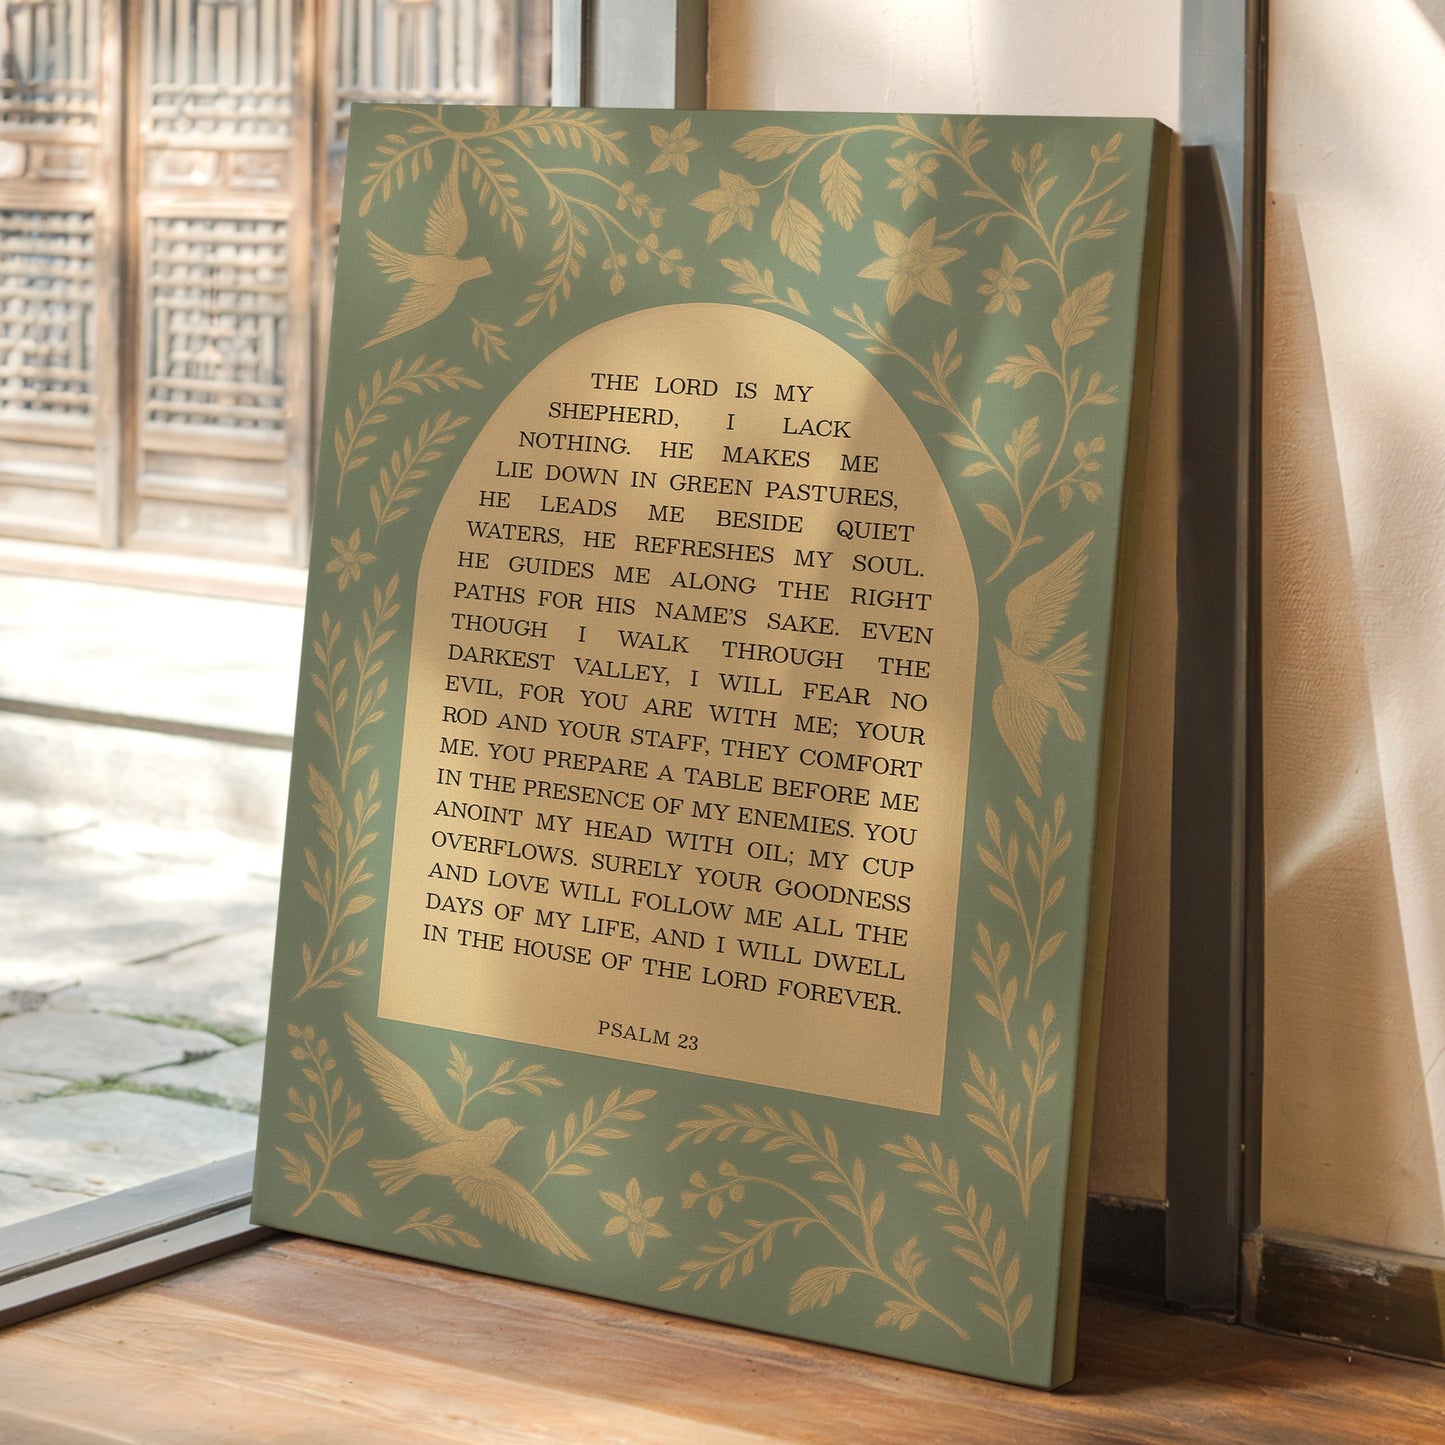 THE LORD IS MY
SHEPHERD, I LACK
NOTHING. HE MAKES ME
LIE DOWN IN GREEN PASTURES,
HE LEADS ME BESIDE QUIET
WATERS, HE REFRESHES MY SOUL.
HE GUIDES ME ALONG THE RIGHT
PATHS FOR HIS NAME'S SAKE. EVEN
THOUGH I WALK THROUGH THE
DARKEST VALLEY, I WILL FEAR NO
EVIL, FOR YOU ARE WITH ME; YOUR
ROD AND YOUR STAFF, THEY COMFORT
ME. YOU PREPARE A TABLE BEFORE ME
IN THE PRESENCE OF MY ENEMIES. YOU
ANOINT MY HEAD WITH OIL; MY CUP
OVERFLOWS. SURELY YOUR GOODNESS
AND LOVE WILL FOLLOW ME ALL THE
DAYS OF MY LIFE, AND I WILL DWELL
IN THE HOUSE OF THE LORD FOREVER.
PSALM 23